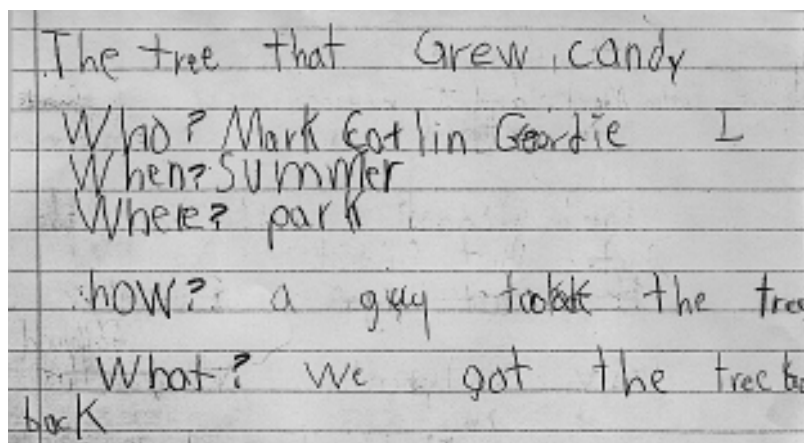 The tree that Grew candy
Who? Mark Eotlin Geordie I
When? Summer
Where? park
how? a guy took the tree
What? We got the tree
back